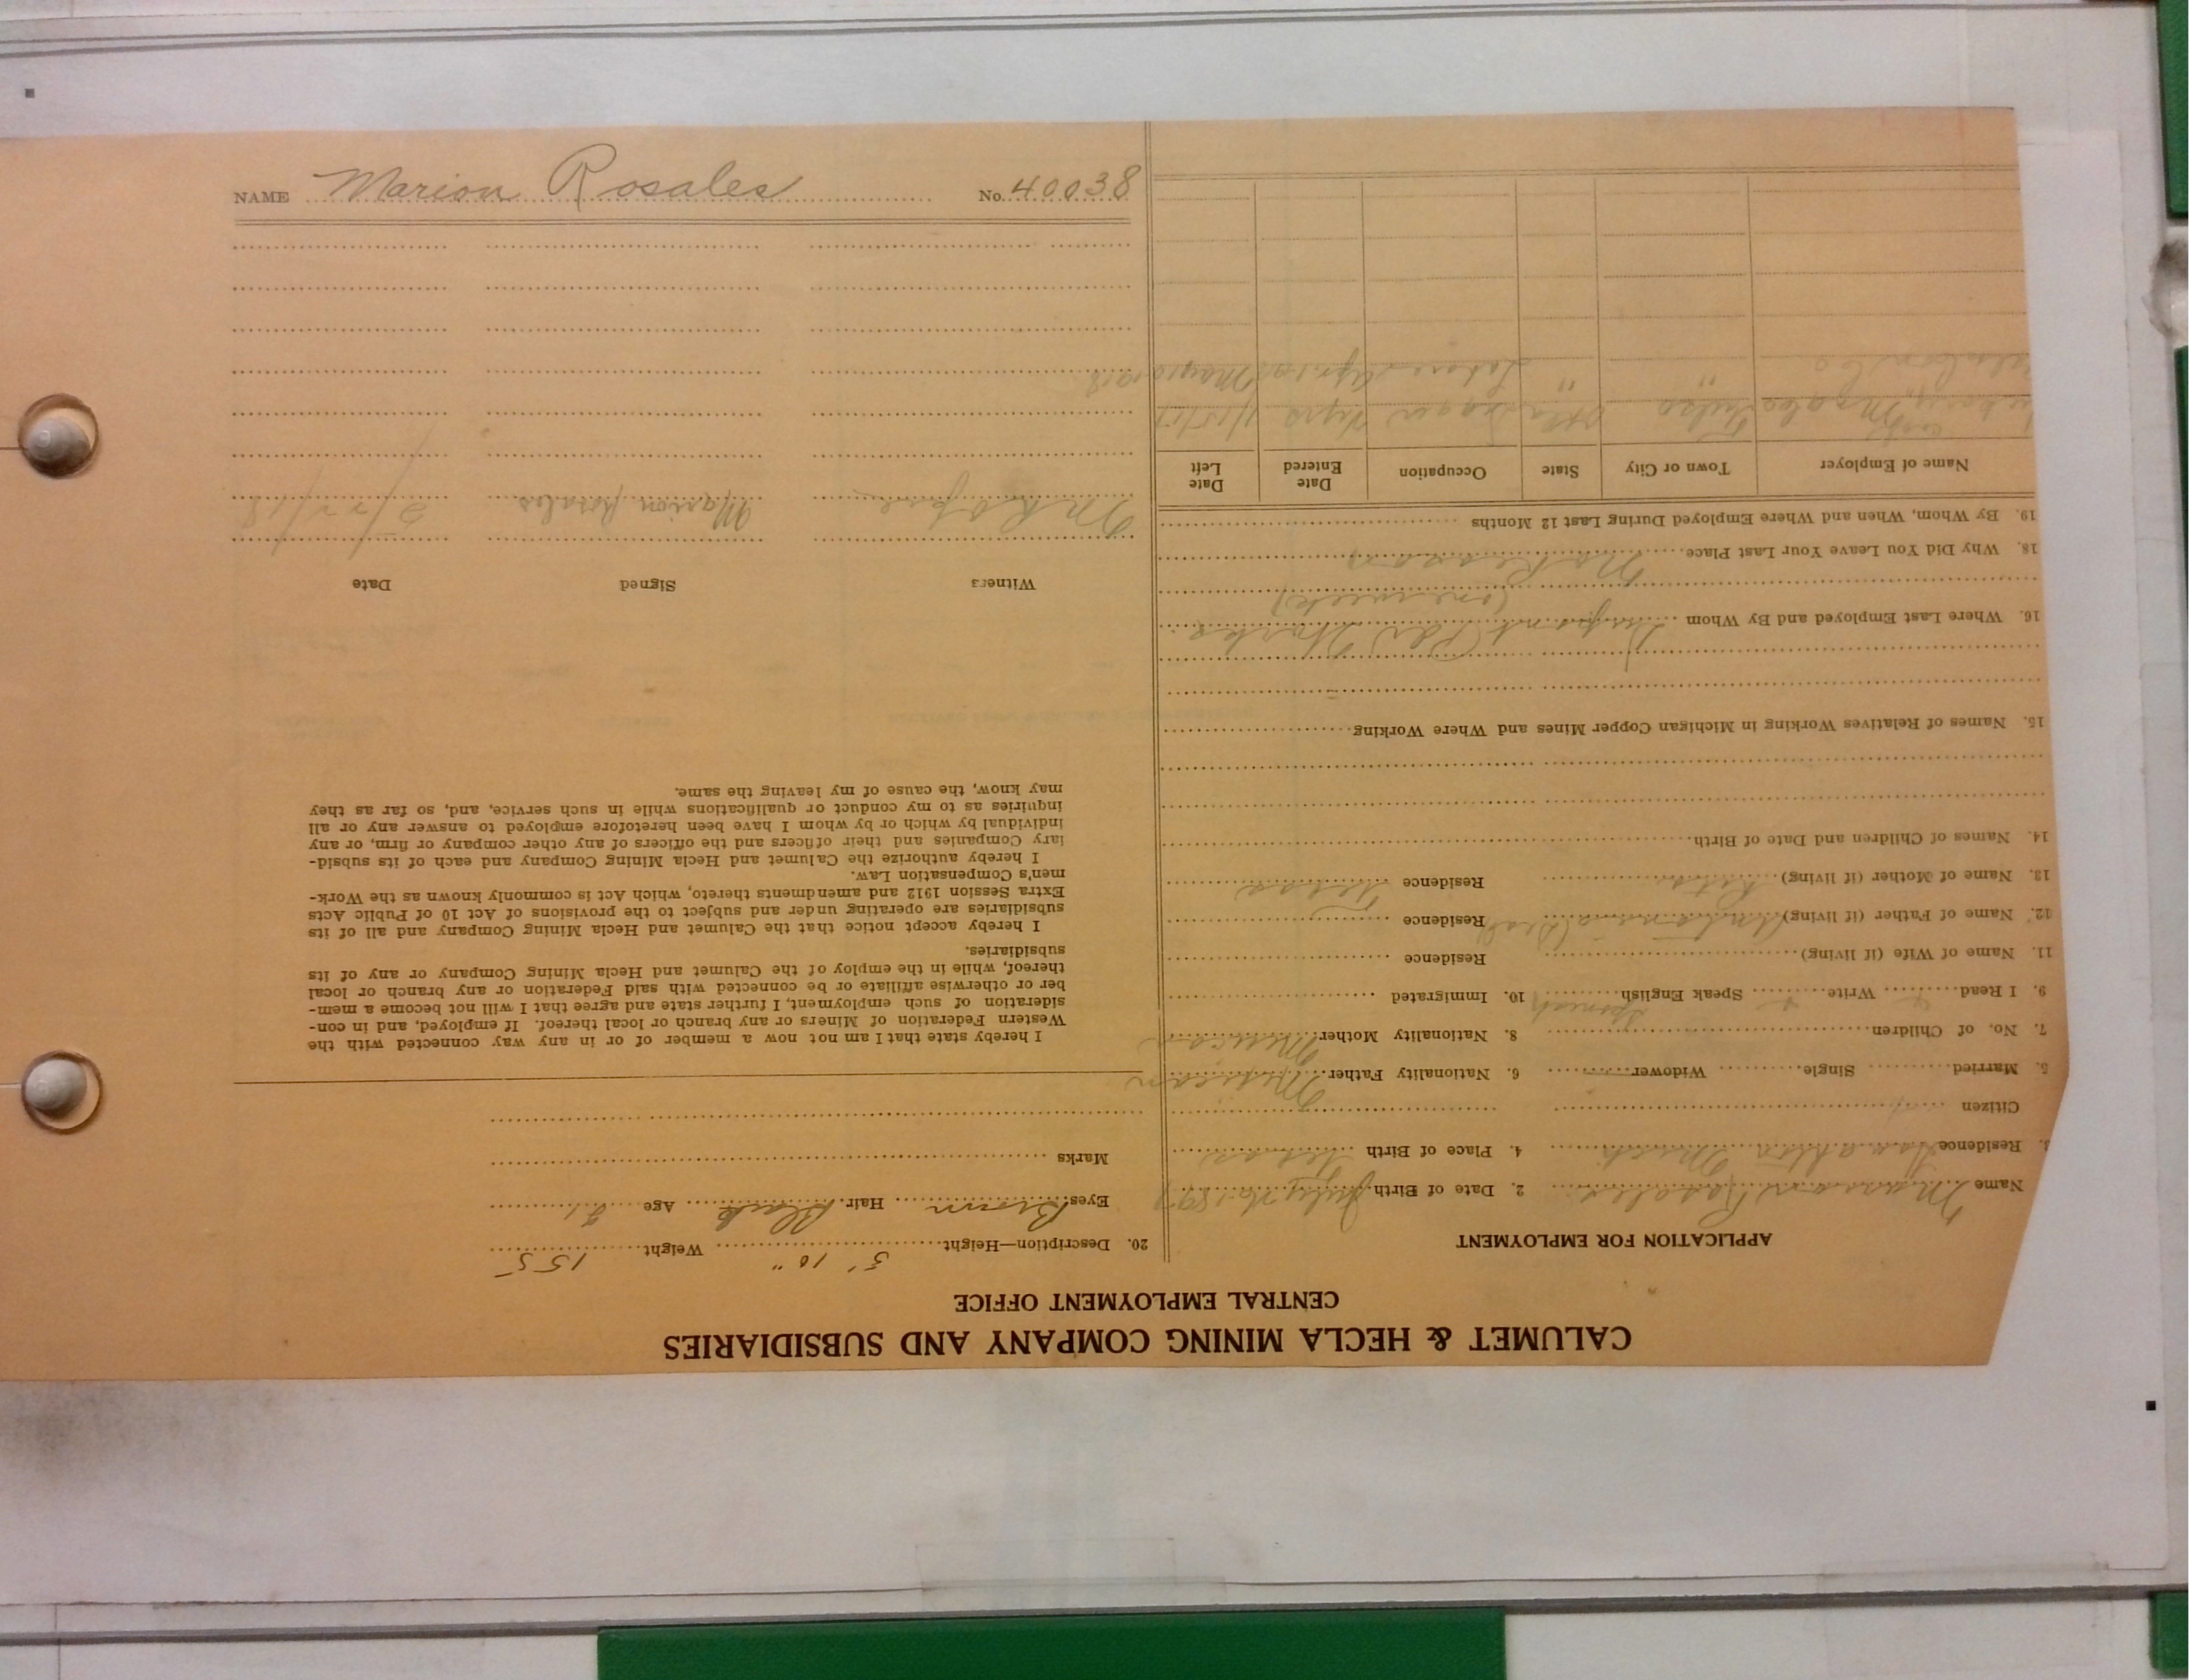 CALUMET & HECLA MINING COMPANY AND SUBSIDIARIES
CENTRAL EMPLOYMENT OFFICE
APPLICATION FOR EMPLOYMENT
Name Marion Rosales 2. Date of Birth July 26 1897
3. Residence Mich 4. Place of Birth Texas
Citizen
5. Married Single Widower 6. Nationality Father Mexican
7. No. of Children 8. Nationality Mother Mexican
9. I Read Write Speak English Spanish 10. Immigrated
11. Name of Wife (if living) Residence
12. Name of Father (if living) Antonio (Dead) Residence
13. Name of Mother (if living) Residence Texas
14. Names of Children and Date of Birth
15. Names of Relatives Working in Michigan Copper Mines and Where Working
16. Where Last Employed and By Whom Dupont Pdr Works
(one week)
18. Why Did You Leave Your Last Place No Reason
19. By Whom, When and Where Employed During Last 12 Months
Name of Employer Town or City State Occupation Date Entered Date Left
Tulsa Okla
" " Laborer Apr. May 10 1918
20. Description—Height 5' 10" Weight 155
Eyes Brown Hair Black Age 21
Marks
I hereby state that I am not now a member of or in any way connected with the
Western Federation of Miners or any branch or local thereof. If employed, and in con-
sideration of such employment, I further state and agree that I will not become a mem-
ber or otherwise affiliate or be connected with said Federation or any branch or local
thereof, while in the employ of the Calumet and Hecla Mining Company or any of its
subsidiaries.
I hereby accept notice that the Calumet and Hecla Mining Company and all of its
subsidiaries are operating under and subject to the provisions of Act 10 of Public Acts
Extra Session 1912 and amendments thereto, which Act is commonly known as the Work-
men's Compensation Law.
I hereby authorize the Calumet and Hecla Mining Company and each of its subsid-
iary Companies and their officers and the officers of any other company or firm, or any
individual by which or by whom I have been heretofore employed to answer any or all
inquiries as to my conduct or qualifications while in such service, and, so far as they
may know, the cause of my leaving the same.
Witness Signed Date
Marion Rosales 5/22/18
NAME Marion Rosales No. 40038